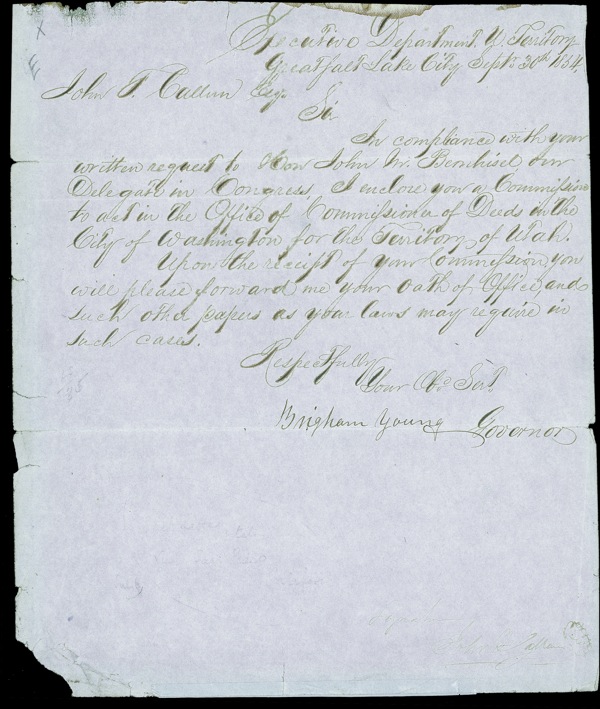 Executive Department. U. Territory
Great Salt Lake City Sept. 30th 1854.
John T. Callan Esq.
Sir
In compliance with your
written request to Hon John M. Bernhisel our
Delegate in Congress, I enclose you a Commission
to act in the Office of Commissioner of Deeds in the
City of Washington for the Territory of Utah.
Upon the receipt of your Commission you
will please forward me your Oath of Office, and
such other papers as your laws may require in
such cases.
Respectfully
Your Obt Sert.
Brigham Young Governor